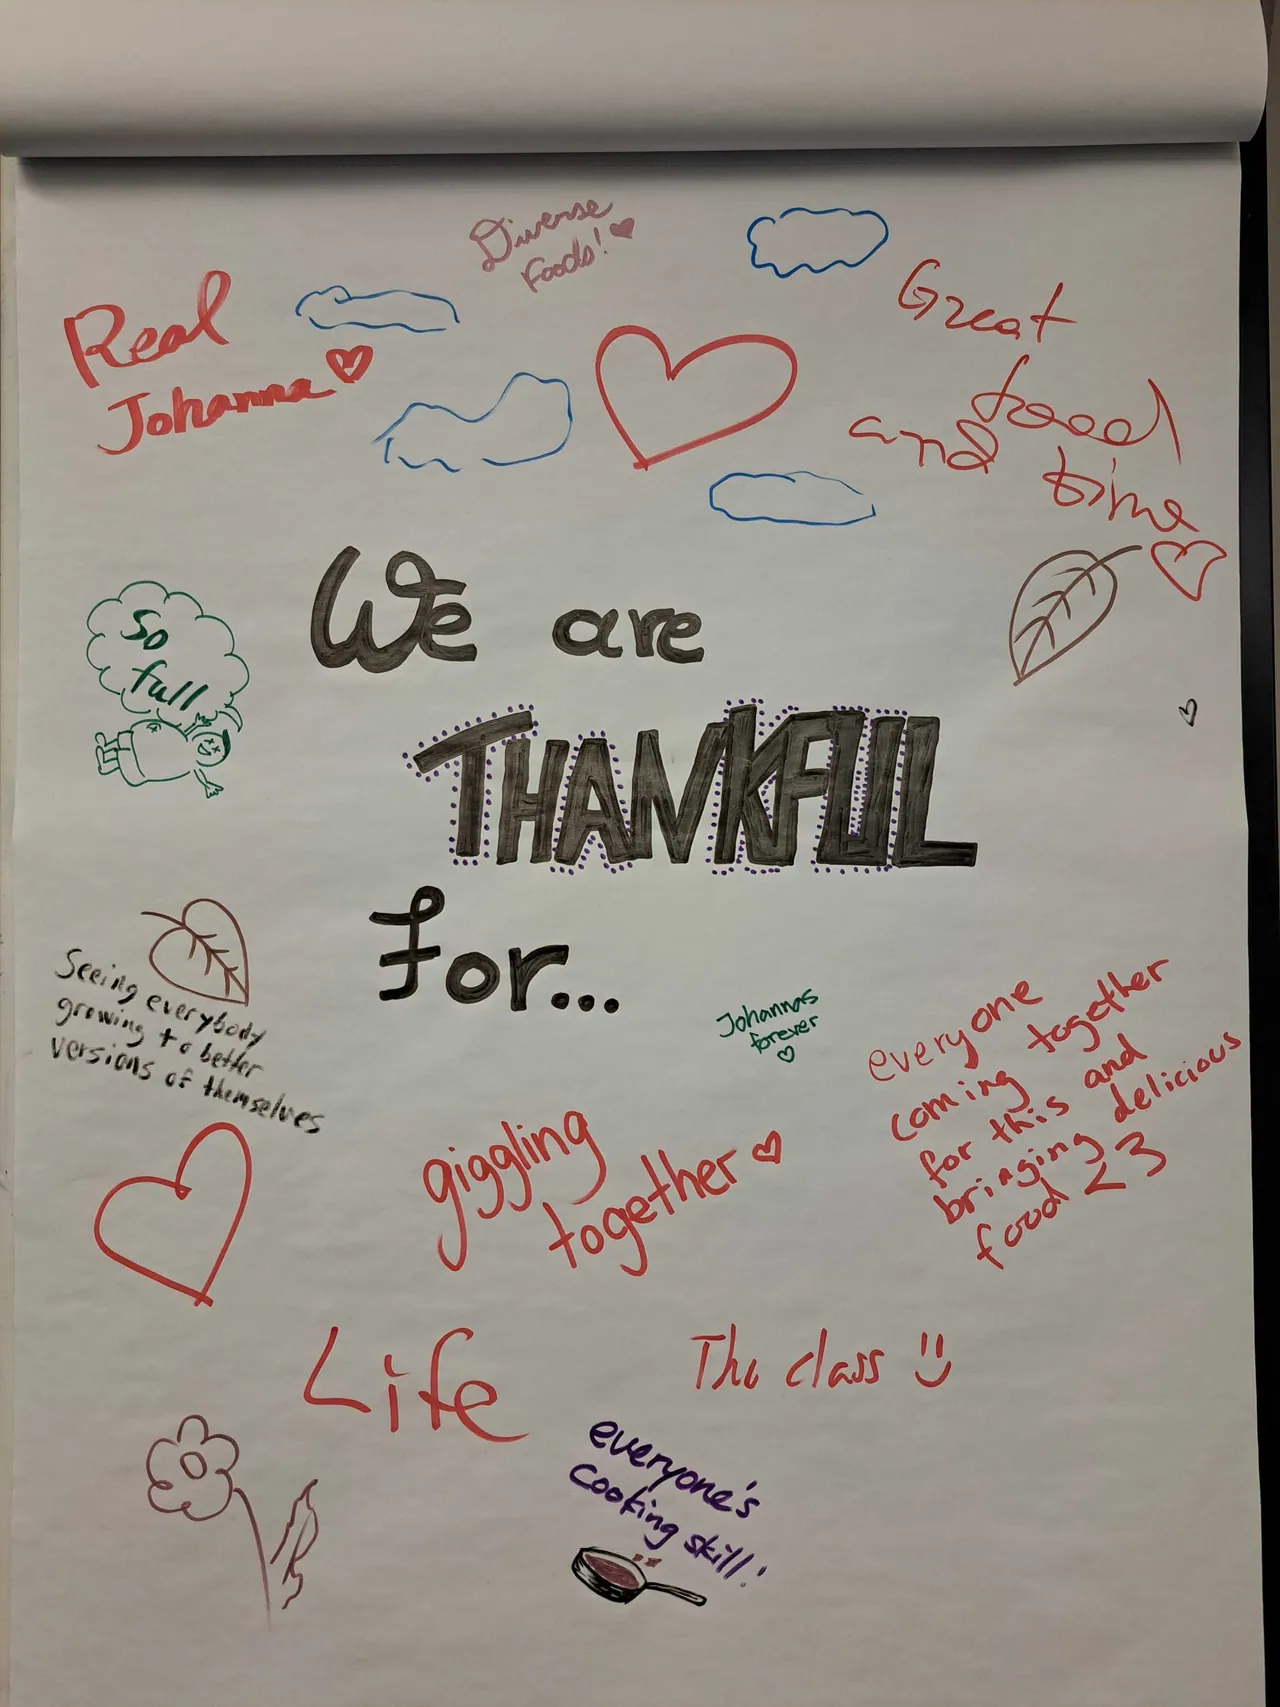 Diverse
Foods!
Real
Johanna
Great
food
and time
So
full
We are
THANKFUL
for...
Seeing everybody
growing to better
versions of themselves
Johannas
forever
everyone
coming together
for this and
bringing delicious
food <3
giggling
together
Life
The class
everyone's
cooking skill!